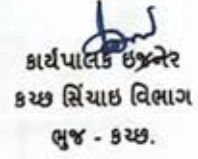 કાર્યપાલક ઇજનેર
કચ્છ સિંચાઇ વિભાગ
ભુજ - કચ્છ.